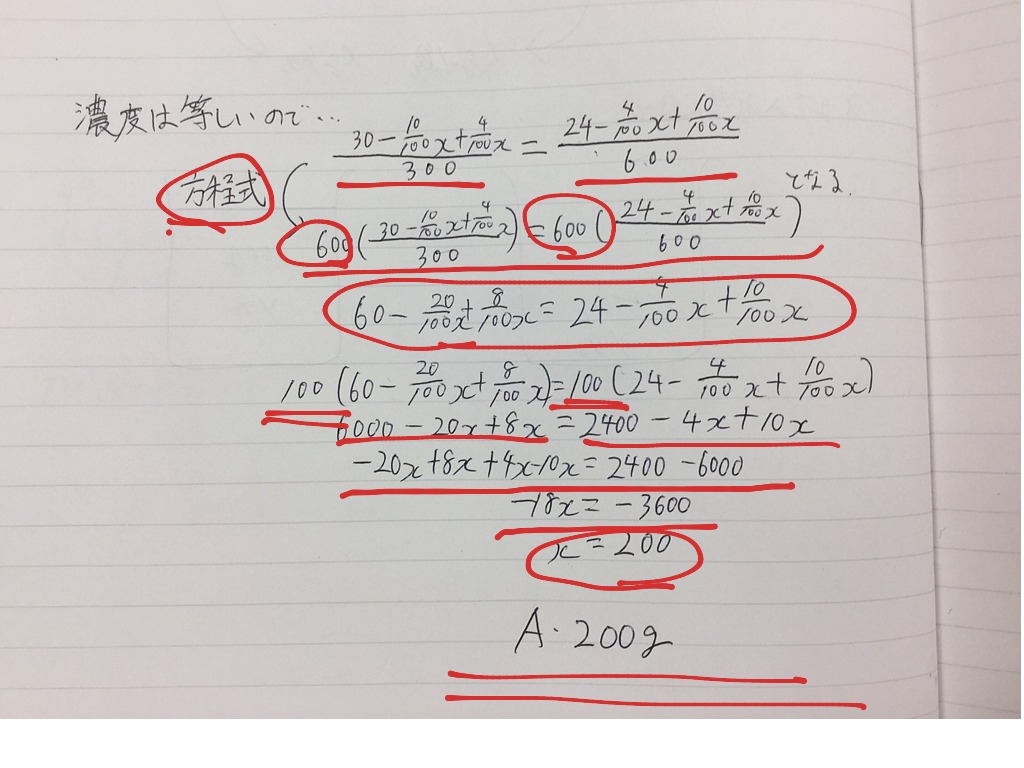 濃度は等しいので…
(30 - 10/100x + 4/100x)/300 = (24 - 4/100x + 10/100x)/600
方程式
600((30 - 10/100x + 4/100x)/300) = 600((24 - 4/100x + 10/100x)/600) となる.
60 - 20/100x + 8/100x = 24 - 4/100x + 10/100x
100(60 - 20/100x + 8/100x) = 100(24 - 4/100x + 10/100x)
6000 - 20x + 8x = 2400 - 4x + 10x
-20x + 8x + 4x - 10x = 2400 - 6000
-18x = -3600
x = 200
A. 200g